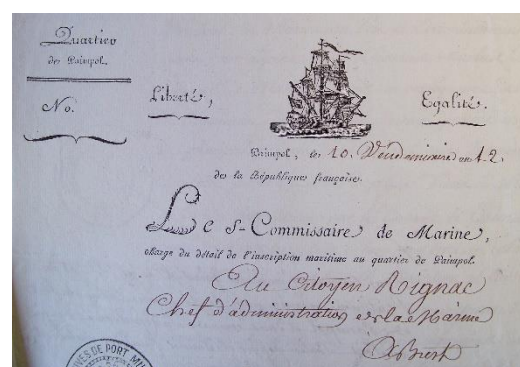 Quartier
de Paimpol.
No.
Liberté,
Egalité.
Paimpol, le 10. Vendemiaire an 12.
de la République française.
Le S-Commissaire de Marine,
charge du détail de l'inscription maritime au quartier de Paimpol.
Au Citoyen Rignac
Chef d'administration de la Marine
A Brest
DE PORT